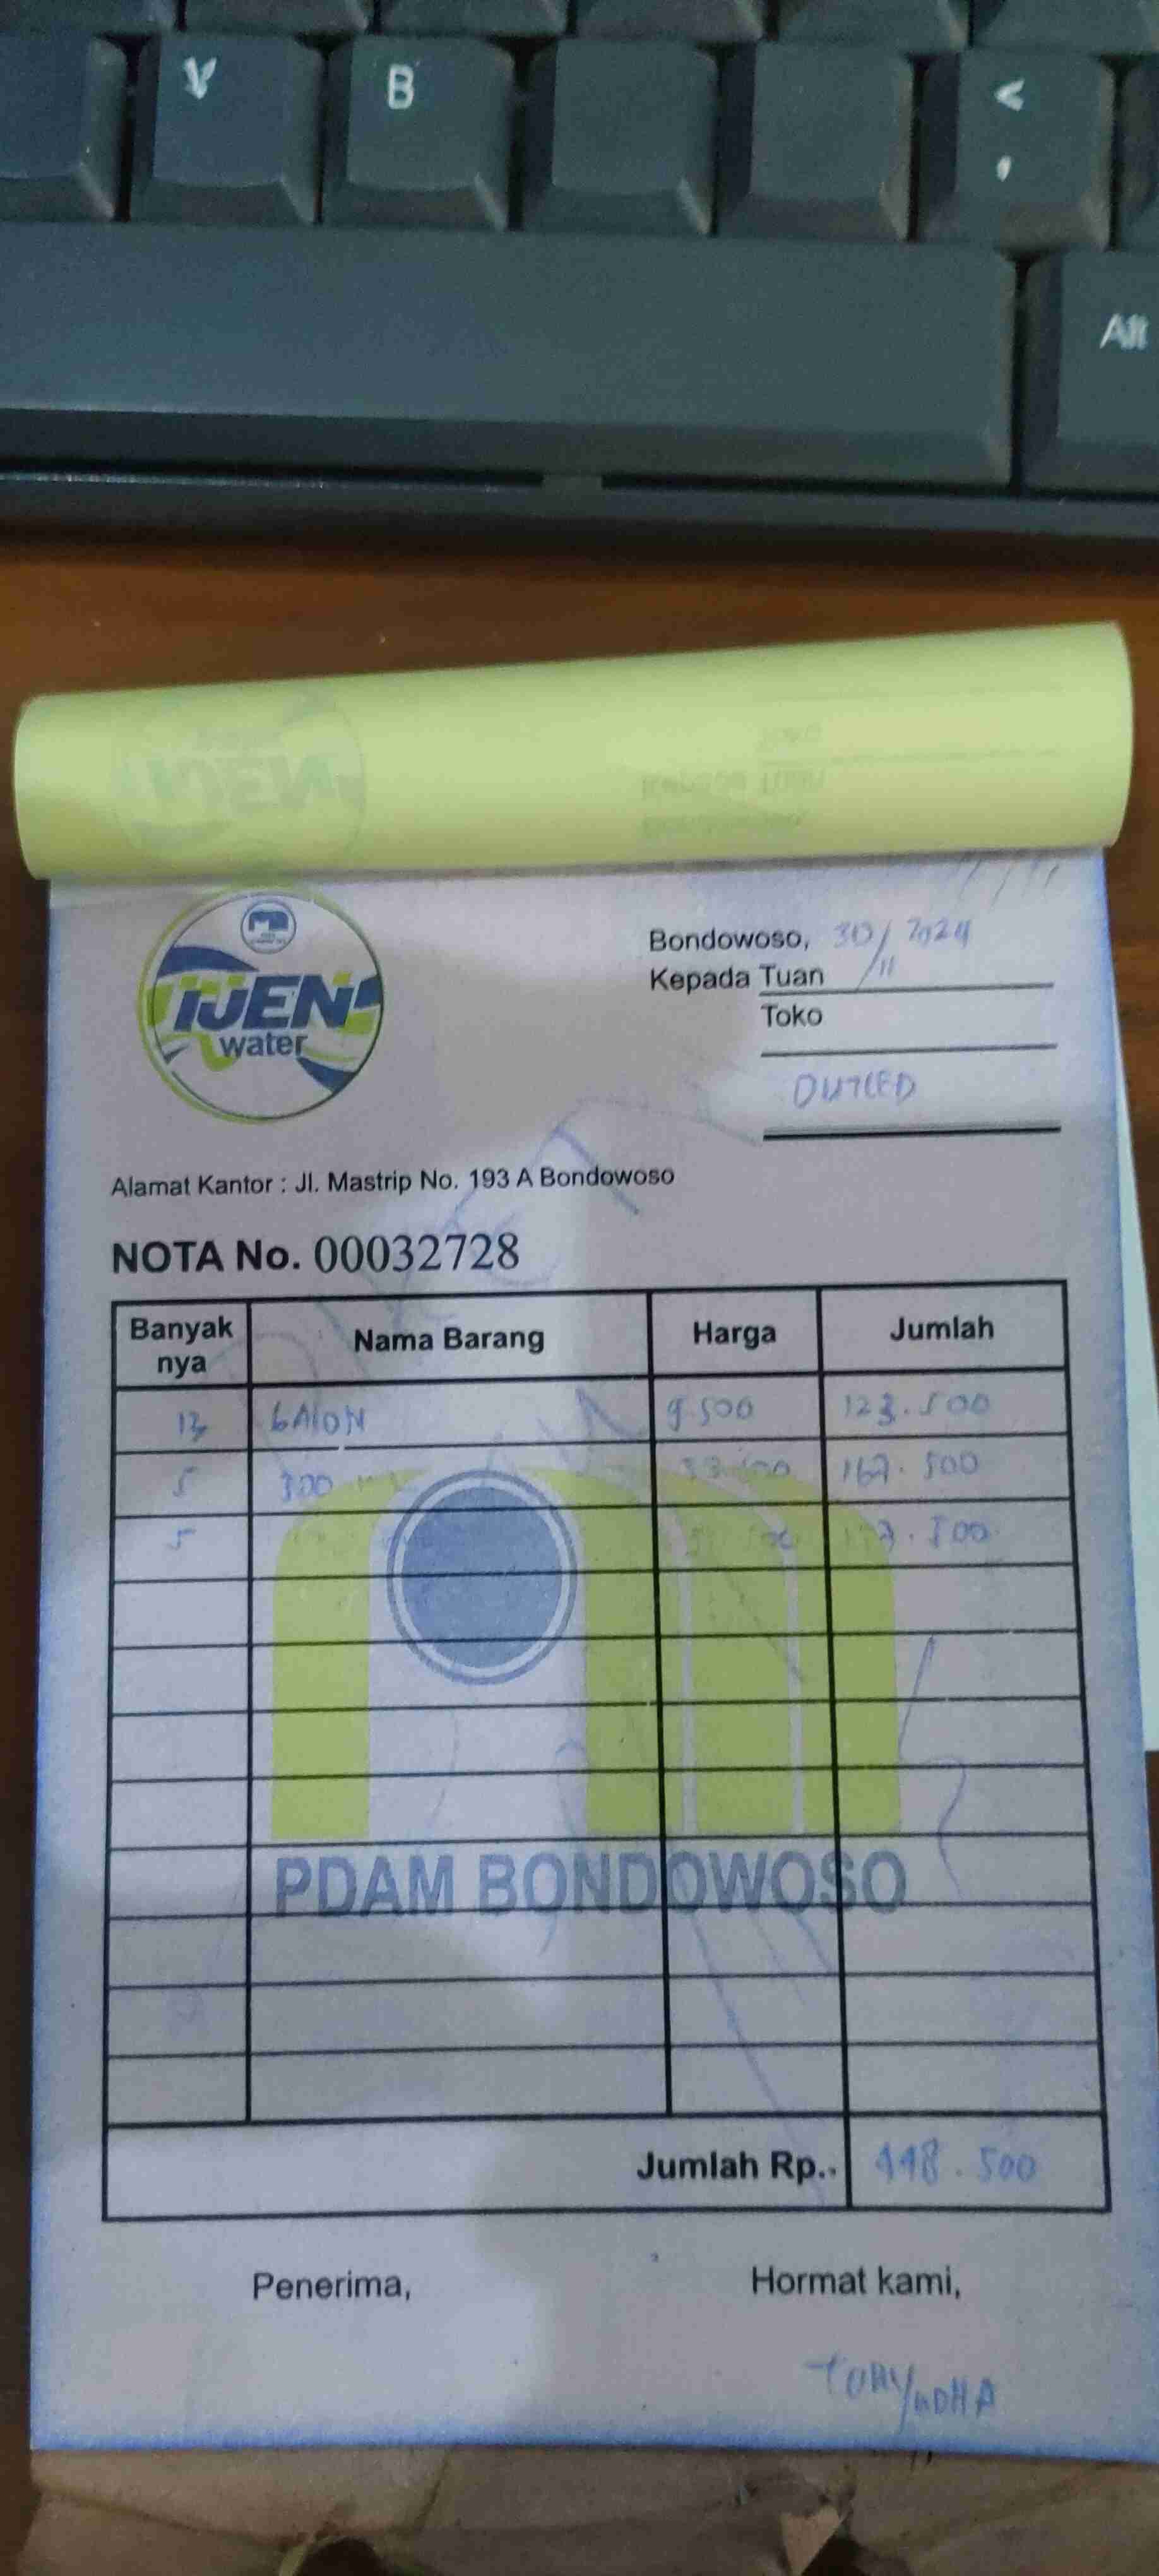 V B < ,
Alt
IJEN
water
Bondowoso, 30/11 2024
Kepada Tuan
Toko
OUTLED
Alamat Kantor : Jl. Mastrip No. 193 A Bondowoso
NOTA No. 00032728
Banyak nya Nama Barang Harga Jumlah
13 GALON 9.500 123.500
5 300 33.500 167.500
5 .500
PDAM BONDOWOSO
Jumlah Rp. 448.500
Penerima, Hormat kami,